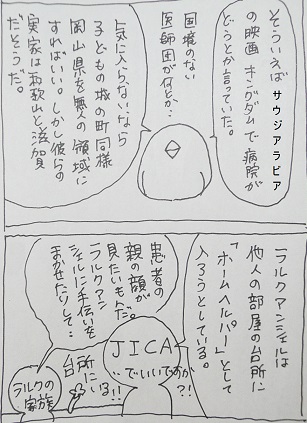 そういえばサウジアラビア
の映画キングダムで病院が
どうとか言っていた。
国境のない
医師団が何とか…
気に入らないなら
子どもの城の町同様
岡山県を無人の領域に
すればいい。しかし彼らの
実家は和歌山と滋賀
だそうだ。
ラルクアンシエルは
他人の部屋の台所に
「ホームヘルパー」として
入ろうとしている。
患者の
親の顔が
見たいもんだ。
ラルクアン
シエルに手伝いを
まかせたりして…
JICA
でいいですか?!
台所にいる!!
ラルクの
家族